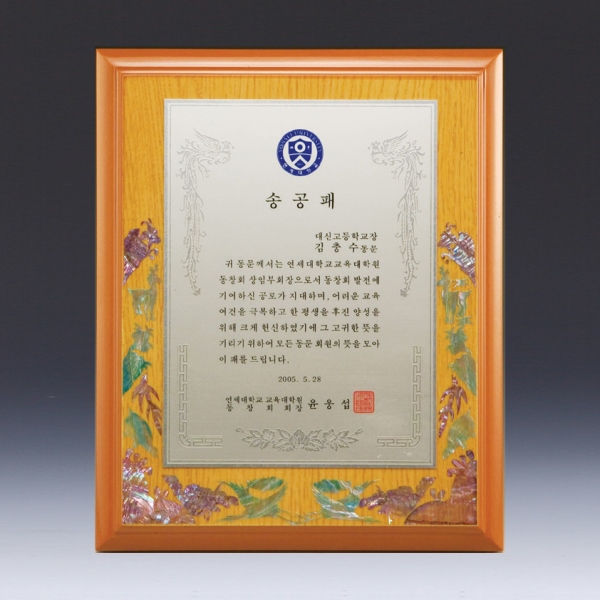 YONSEI UNIVERSITY
연세대학교
송공패
대신고등학교장
김충수 동문
귀 동문께서는 연세대학교교육대학원
동창회 상임부회장으로서 동창회 발전에
기여하신 공로가 지대하며, 어려운 교육
여건을 극복하고 한 평생을 후진 양성을
위해 크게 헌신하였기에 그 고귀한 뜻을
기리기 위하여 모든 동문 회원의 뜻을 모아
이 패를 드립니다.
2005. 5. 28
연세대학교 교육대학원
동창회회장 윤웅섭